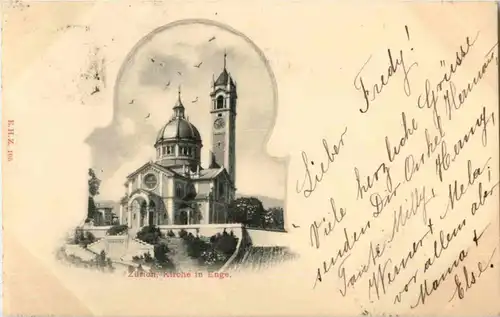 E.H.Z. 180.
Zürich, Kirche in Enge.
Lieber Fredy!
Viele herzliche Grüsse
senden Dir Onkel Hermann,
Tante Milly, Henny,
Werner & Mela,
vor allem aber
Mama &
Else.